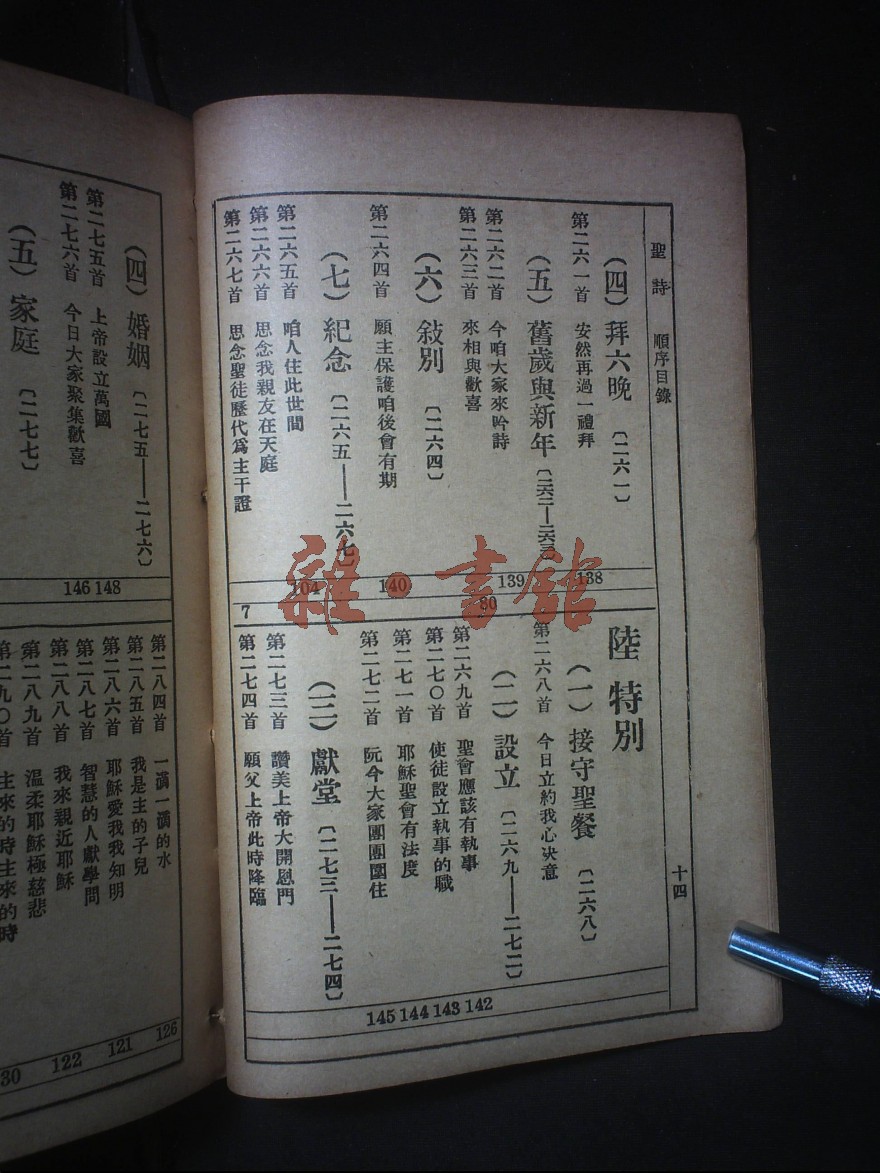 聖詩 順序目錄
十四
(四) 拜六晚 〔二六一〕
第二六一首 安然再過一禮拜
138
(五) 舊歲與新年 〔二六二—二六三〕
第二六二首 今咱大家來吟詩
139
第二六三首 來相與歡喜
80
(六) 敍別 〔二六四〕
第二六四首 願主保護咱後會有期
140
(七) 紀念 〔二六五——二六七〕
第二六五首 咱人住此世間
104
第二六六首 思念我親友在天庭
第二六七首 思念聖徒歷代爲主干證
7
陸 特別
(一) 接守聖餐 〔二六八〕
第二六八首 今日立約我心决意
(二) 設立 〔二六九——二七二〕
第二六九首 聖會應該有執事
142
第二七〇首 使徒設立執事的職
143
第二七一首 耶穌聖會有法度
144
第二七二首 阮今大家團團圍住
145
(三) 獻堂 〔二七三——二七四〕
第二七三首 讚美上帝大開恩門
第二七四首 願父上帝此時降臨
(四) 婚姻 〔二七五——二七六〕
第二七五首 上帝設立萬國
148
第二七六首 今日大家聚集歡喜
146
(五) 家庭 〔二七七〕
第二八四首 一滿一滴的水
126
第二八五首 我是主的子兒
第二八六首 耶穌愛我我知明
121
第二八七首 智慧的人獻學問
第二八八首 我來親近耶穌
122
第二八九首 温柔耶穌極慈悲
第二九〇首 主來的時主來的時
30
雜·書館